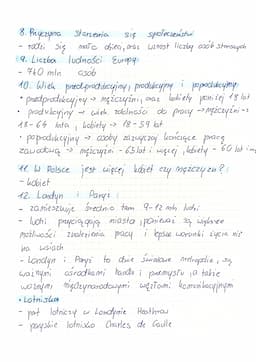 8. Przyczyna starzenia się społeczeństw:
- rodzi się mało dzieci, oraz wzrost liczby osób starszych
9. Liczba ludności Europy:
- 740 mln osób
10. Wiek przedprodukcyjny, produkcyjny i poprodukcyjny:
• przedprodukcyjny → mężczyźni, oraz kobiety poniżej 18 lat
• produkcyjny → wiek zdolności do pracy → mężczyźni -
18-64 lata, kobiety → 18-59 lat
• poprodukcyjny → osoby zazwyczaj kończące pracę
zawodową → mężczyźni - 65 lat i więcej, kobiety - 60 lat i
11. W Polsce jest więcej kobiet czy mężczyzn?:
- kobiet
12. Londyn i Paryż:
- zamieszkuje średnio tam 9-12 mln. ludzi
- ludzi przyciągają miasta, ponieważ są większe
możliwości znalezienia pracy i lepsze warunki życia niż
na wsiach
- Londyn i Paryż to dwie światowe metropolie, są
ważnymi ośrodkami handlu i przemysłu, a także
ważnymi międzynarodowymi węzłami komunikacyjnymi
• Lotniska
- port lotniczy w Londynie Heathrow
- paryskie lotnisko Charles de Gaulle